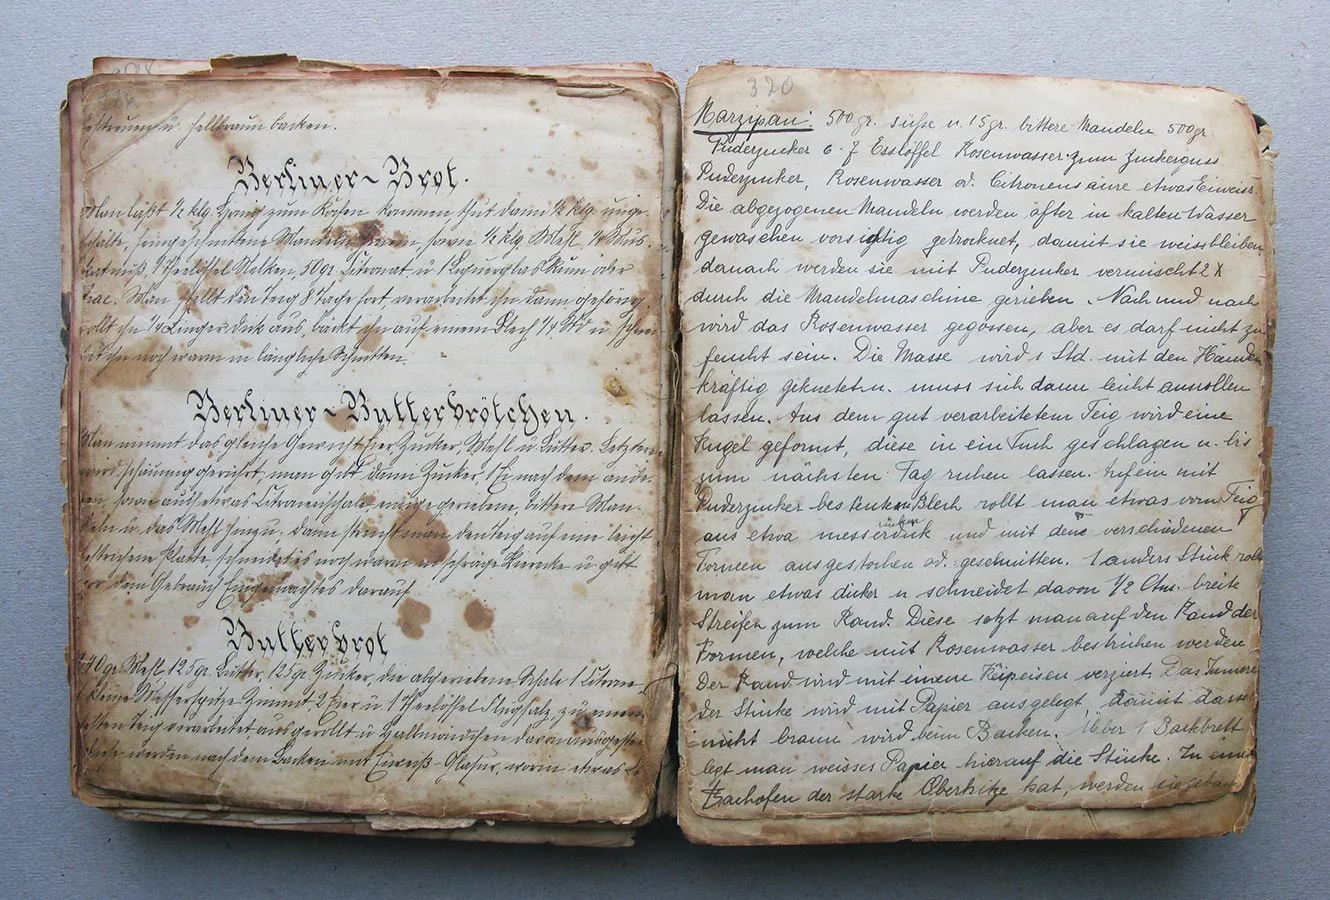 bestreuen u. hellbraun backen.
Berliner-Brot.
Man läßt ½ klg. Honig zum Kochen kommen thut dann ½ klg. unge-
schälte, feingeschnittene Mandeln hinein, sowie ½ klg Mehl, ¼ Mus-
katnuß, 1 Theelöffel Nelken, 50gr. Citronat u 1 Liqueurglas Rum oder
Man stellt den Teig 8 Tage fort verarbeitet ihn dann gehörig
rollt ihn ¼ Finger dick aus, bäckt ihn auf einem Blech ¼ Std u. schnei-
det ihn noch warm in längliche Schnitten.
Berliner-Butterbrötchen.
Man nimmt das gleiche Gewicht Eier, Zucker, Mehl u. Butter. Letztere
wird schaumig gerührt, man gibt dann Zucker, 1 Ei nach dem ande-
ren, sowie auch etwas Citronenschale, bittere Man-
deln u. das Mehl hinzu. Dann streicht man den Teig auf eine leicht
bestrichene Platte schneidet es noch warm in schräge Vierecke u. gibt
vor dem Gebrauch Eingemachtes darauf
Butterbrot
gr. Mehl 125gr. Butter, 125gr. Zucker, die abgeriebene Schale 1 Citrone
1 kleine Messerspitze Zimmt, 2 Eier u. 1 Theelöffel zu einem
festen Teig verarbeitet ausgerollt u. Halbmöndchen davon ausgestochen
werden nach dem Backen mit Eiweiß-Glasur, worin etwas
320
Marzipan: 500gr. süße u. 15gr. bittere Mandeln 500gr
Puderzucker 6-7 Esslöffel Rosenwasser. zum Zuckerguss
Puderzucker, Rosenwasser od. Citronensäure etwas Eiweiss.
Die abgezogenen Mandeln werden öfter in kalten Wasser
gewaschen vorsichtig getrocknet, damit sie weissbleiben
danach werden sie mit Puderzucker vermischt 2 X
durch die Mandelmaschine gerieben. Nach und nach
wird das Rosenwasser gegossen, aber es darf nicht zu
feucht sein. Die Masse wird 1 Std. mit den Händen
kräftig geknetet u. muss sich dann leicht ausrollen
lassen. Aus dem gut verarbeitetem Teig wird eine
Kugel geformt, diese in ein Tuch geschlagen u. bis
zum nächsten Tag ruhen lassen. Auf ein mit
Puderzucker bestreutes Blech rollt man etwas vom Teig
aus etwa messerrückendick und mit den verschiedenen
Formen ausgestochen od. geschnitten. 1 anders Stück rollt
man etwas dicker u schneidet davon ½ Ctm. breite
Streifen zum Rand. Diese setzt man auf den Rand der
Formen, welche mit Rosenwasser bestrichen werden
Der Rand wird mit einem Kneipeisen verziert. Das Innere
der Stücke wird mit Papier ausgelegt, damit dasse
nicht braun wird beim Backen. Ueber 1 Backbrett
legt man weisses Papier hierauf die Stücke. In einen
Backofen der starke Oberhitze hat, werden sie gebac